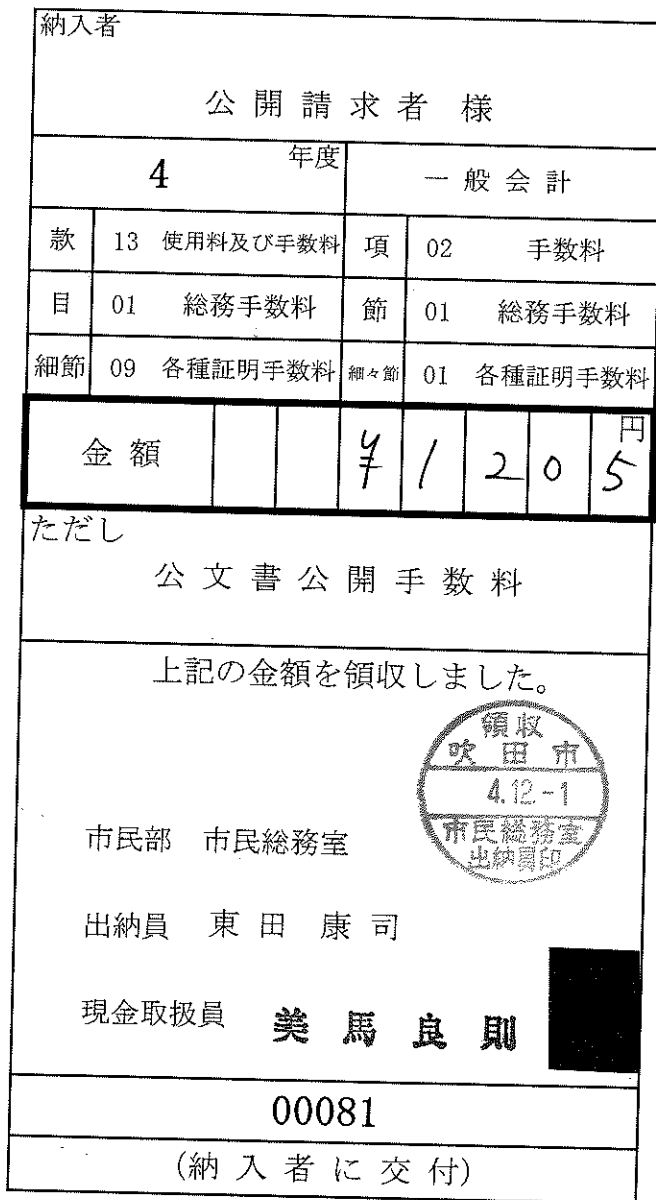 納入者
公開請求者 様
4 年度 一般会計
款 13 使用料及び手数料 項 02 手数料
目 01 総務手数料 節 01 総務手数料
細節 09 各種証明手数料 細々節 01 各種証明手数料
金額 ¥1205円
ただし
公文書公開手数料
上記の金額を領収しました。
領収
吹田市
4.12.-1
市民総務室
出納員印
市民部 市民総務室
出納員 東田 康司
現金取扱員 美馬良則
00081
(納入者に交付)